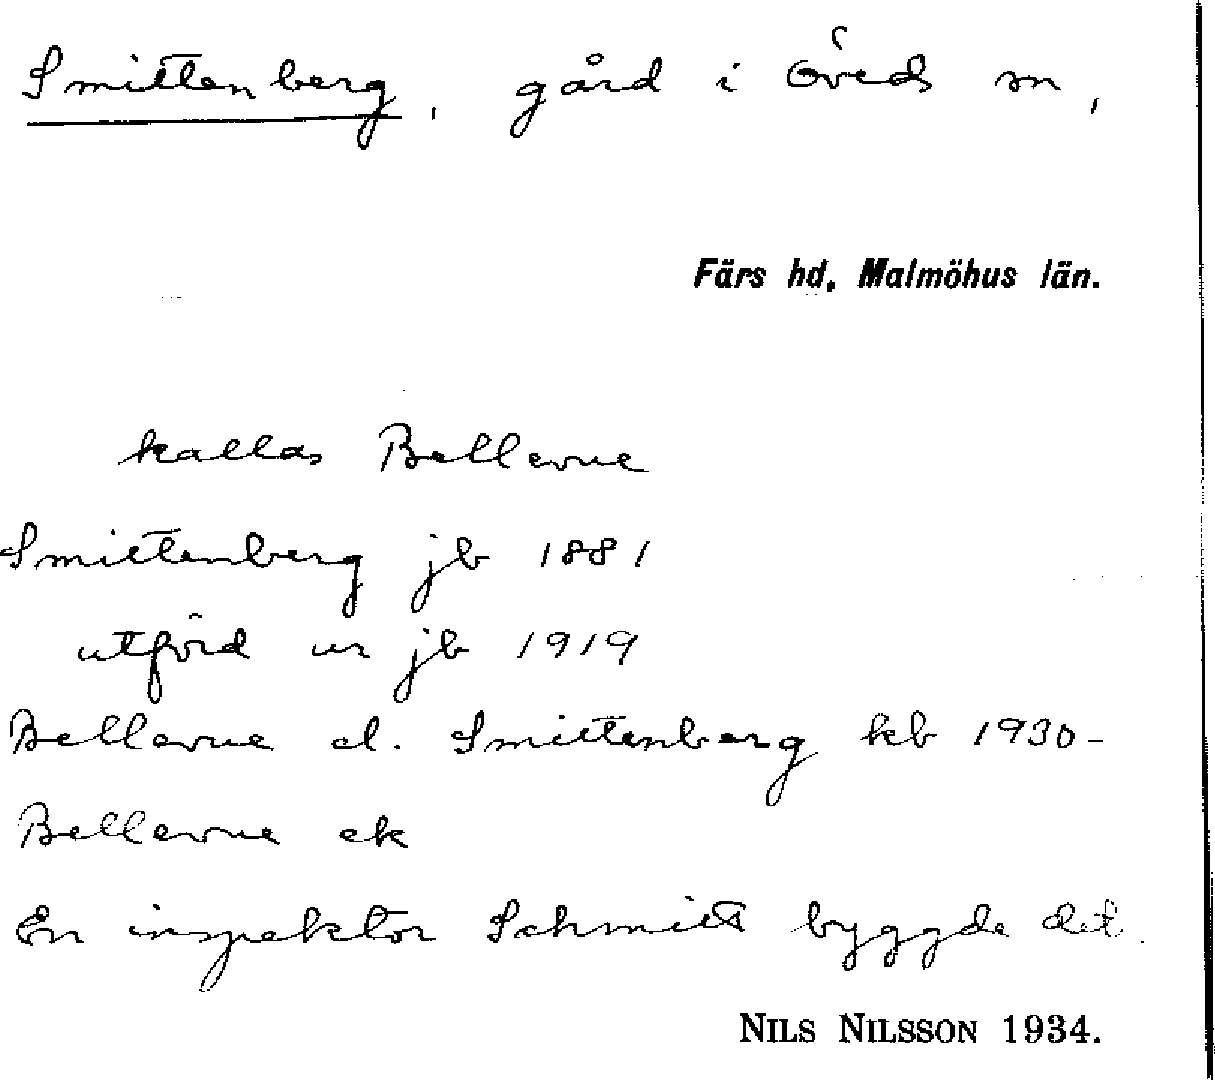 Smittenberg, gård i Öveds sn,
Färs hd, Malmöhus län.
kallas Bellevue
Smittenberg jb 1881
utförd ur jb 1919
Bellevue el. Smittenberg kb 1930-
Bellevue ek
En inspektor Schmitt byggde det.
NILS NILSSON 1934.